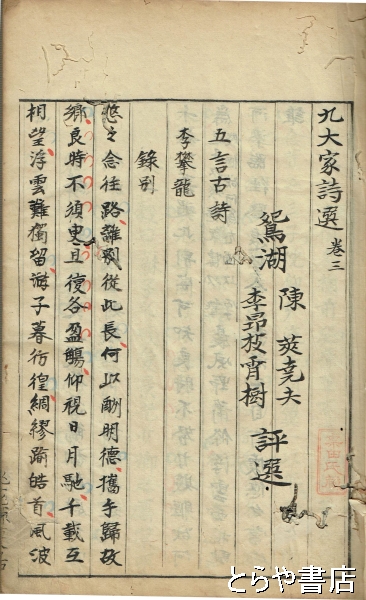 九大家詩選 卷三
鴛湖 陳莢堯夫 評選
李昂枝霄樹
五言古詩
李攀龍
錄别
悠々念往路離别從此長何以酬明德攜手歸故
鄉良時不須臾且復各盈觴仰視日月馳千載互
相望浮雲難獨留游子暮彷徨綢繆踰皓首風波
とらや書店